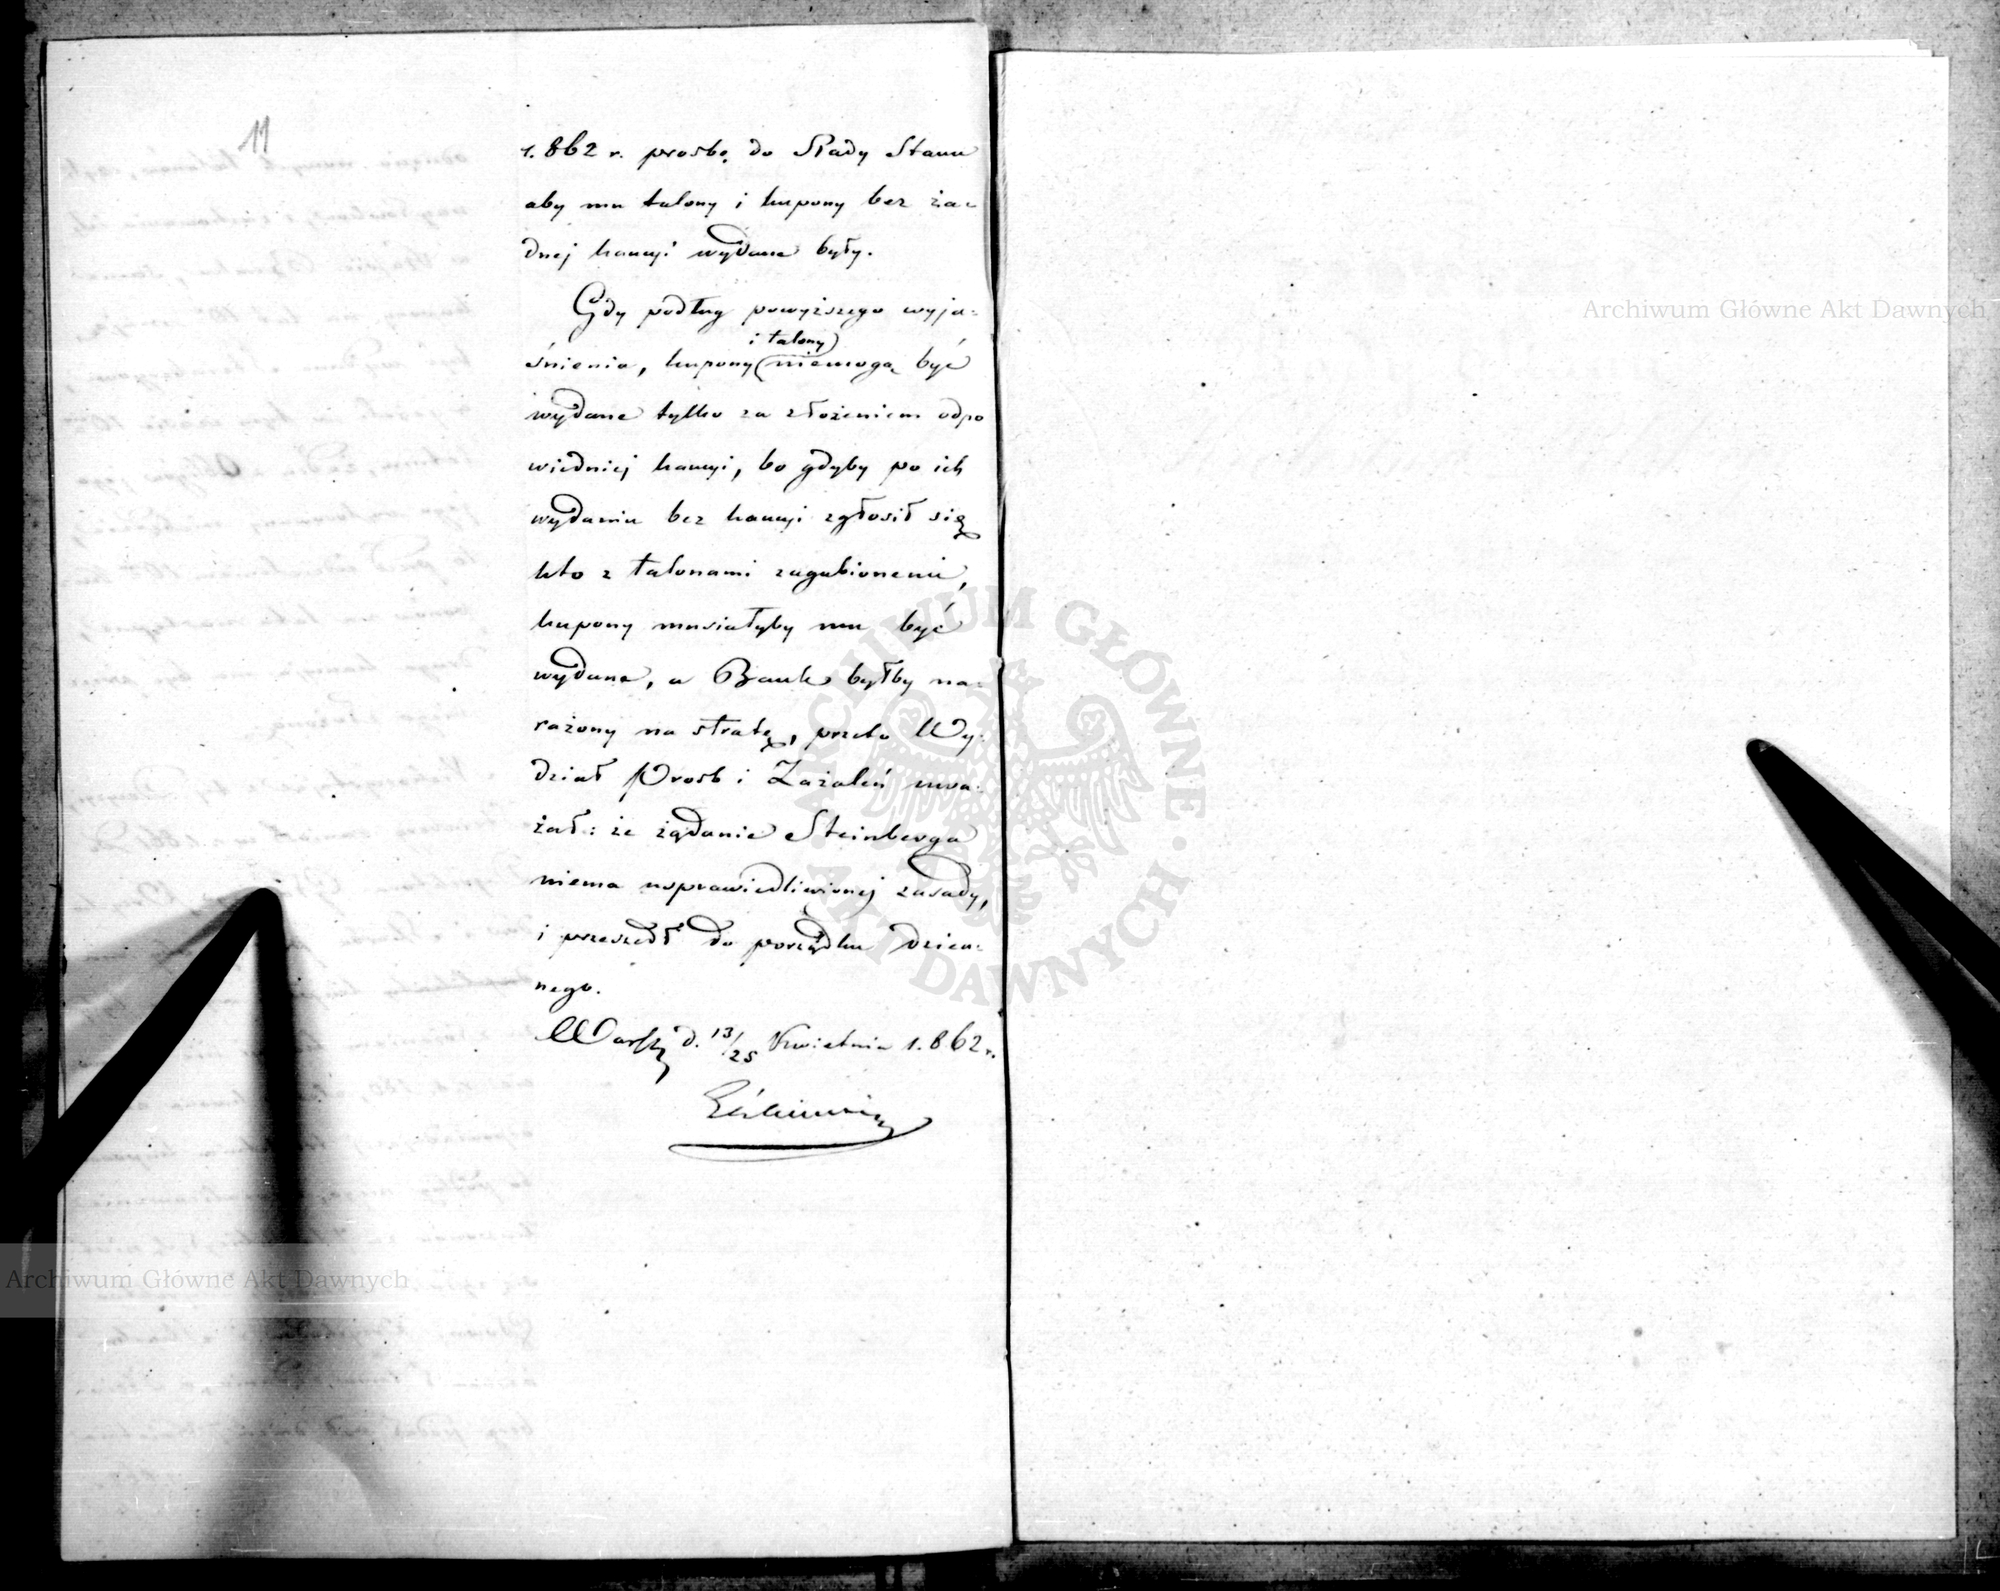 11
1.862 r. prosbę do Rady Stanu
aby mu talony i kupony bez ża-
dnej kaucyi wydane były.
Gdy podług powyższego wyja-
i talony
śnienia, kupony niemogą być
wydane tylko za złożeniem odpo
wiedniej kaucyi, bo gdyby po ich
wydaniu bez kaucyi zgłosił się
kto z talonami zagubionemi,
kupony musiałyby mu być
wydane, a Bank byłby na-
rażony na stratę, przeto Wy-
dział Prosb i Zażaleń uwa-
żał: że żądanie Steinberga
niema usprawiedliwionej zasady,
i przeszedł do porządku dzien-
nego.
Warsz d. 13/25 Kwietnia 1.862 r.
Archiwum Główne Akt Dawnych
Archiwum Główne Akt Dawnych
ARCHIWUM GŁÓWNE · AKT DAWNYCH ·